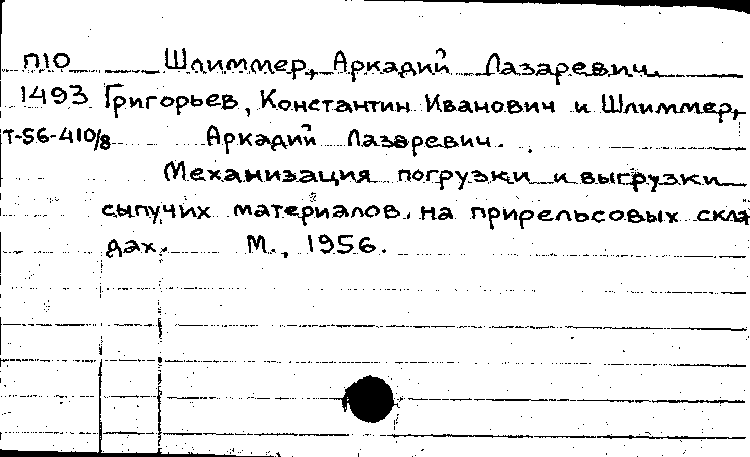 П10 Шлиммер, Аркадий Лазаревич.
1493 Григорьев, Константин Иванович и Шлиммер,
Т-56-410/8 Аркадий Лазаревич.
Механизация погрузки и выгрузки
сыпучих материалов на прирельсовых скла
дах. М., 1956.